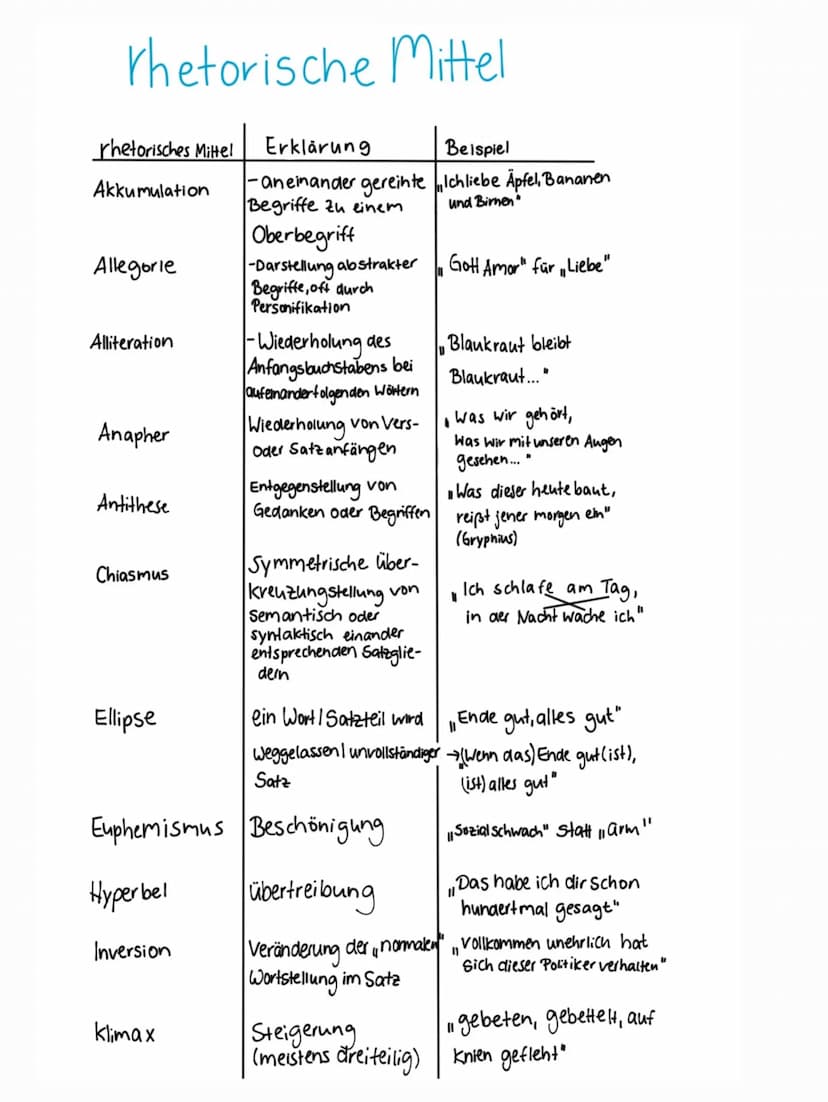 rhetorische Mittel
rhetorisches Mittel Erklärung Beispiel
Akkumulation
- aneinander gereihte
Begriffe zu einem
Oberbegriff
„Ich liebe Äpfel, Bananen
und Birnen"
Allegorie
- Darstellung abstrakter
Begriffe, oft durch
Personifikation
„Gott Amor" für „Liebe"
Alliteration
- Wiederholung des
Anfangsbuchstabens bei
aufeinanderfolgenden Wörtern
„Blaukraut bleibt
Blaukraut..."
Anapher
Wiederholung von Vers-
oder Satzanfängen
„Was wir gehört,
Was wir mit unseren Augen
gesehen..."
Antithese
Entgegenstellung von
Gedanken oder Begriffen
„Was dieser heute baut,
reißt jener morgen ein"
(Gryphius)
Chiasmus
Symmetrische Über-
kreuzungstellung von
semantisch oder
syntaktisch einander
entsprechenden Satzglie-
dern
„Ich schlafe am Tag,
in der Nacht wache ich"
Ellipse
ein Wort/Satzteil wird
weggelassen/unvollständiger
Satz
„Ende gut, alles gut"
→„(Wenn das) Ende gut (ist),
(ist) alles gut"
Euphemismus
Beschönigung
„Sozial schwach" statt „arm"
Hyperbel
übertreibung
„Das habe ich dir schon
hundertmal gesagt"
Inversion
Veränderung der „normalen"
Wortstellung im Satz
„vollkommen unehrlich hat
sich dieser Politiker verhalten"
Klimax
Steigerung
(meistens dreiteilig)
„gebeten, gebettelt, auf
Knien gefleht"